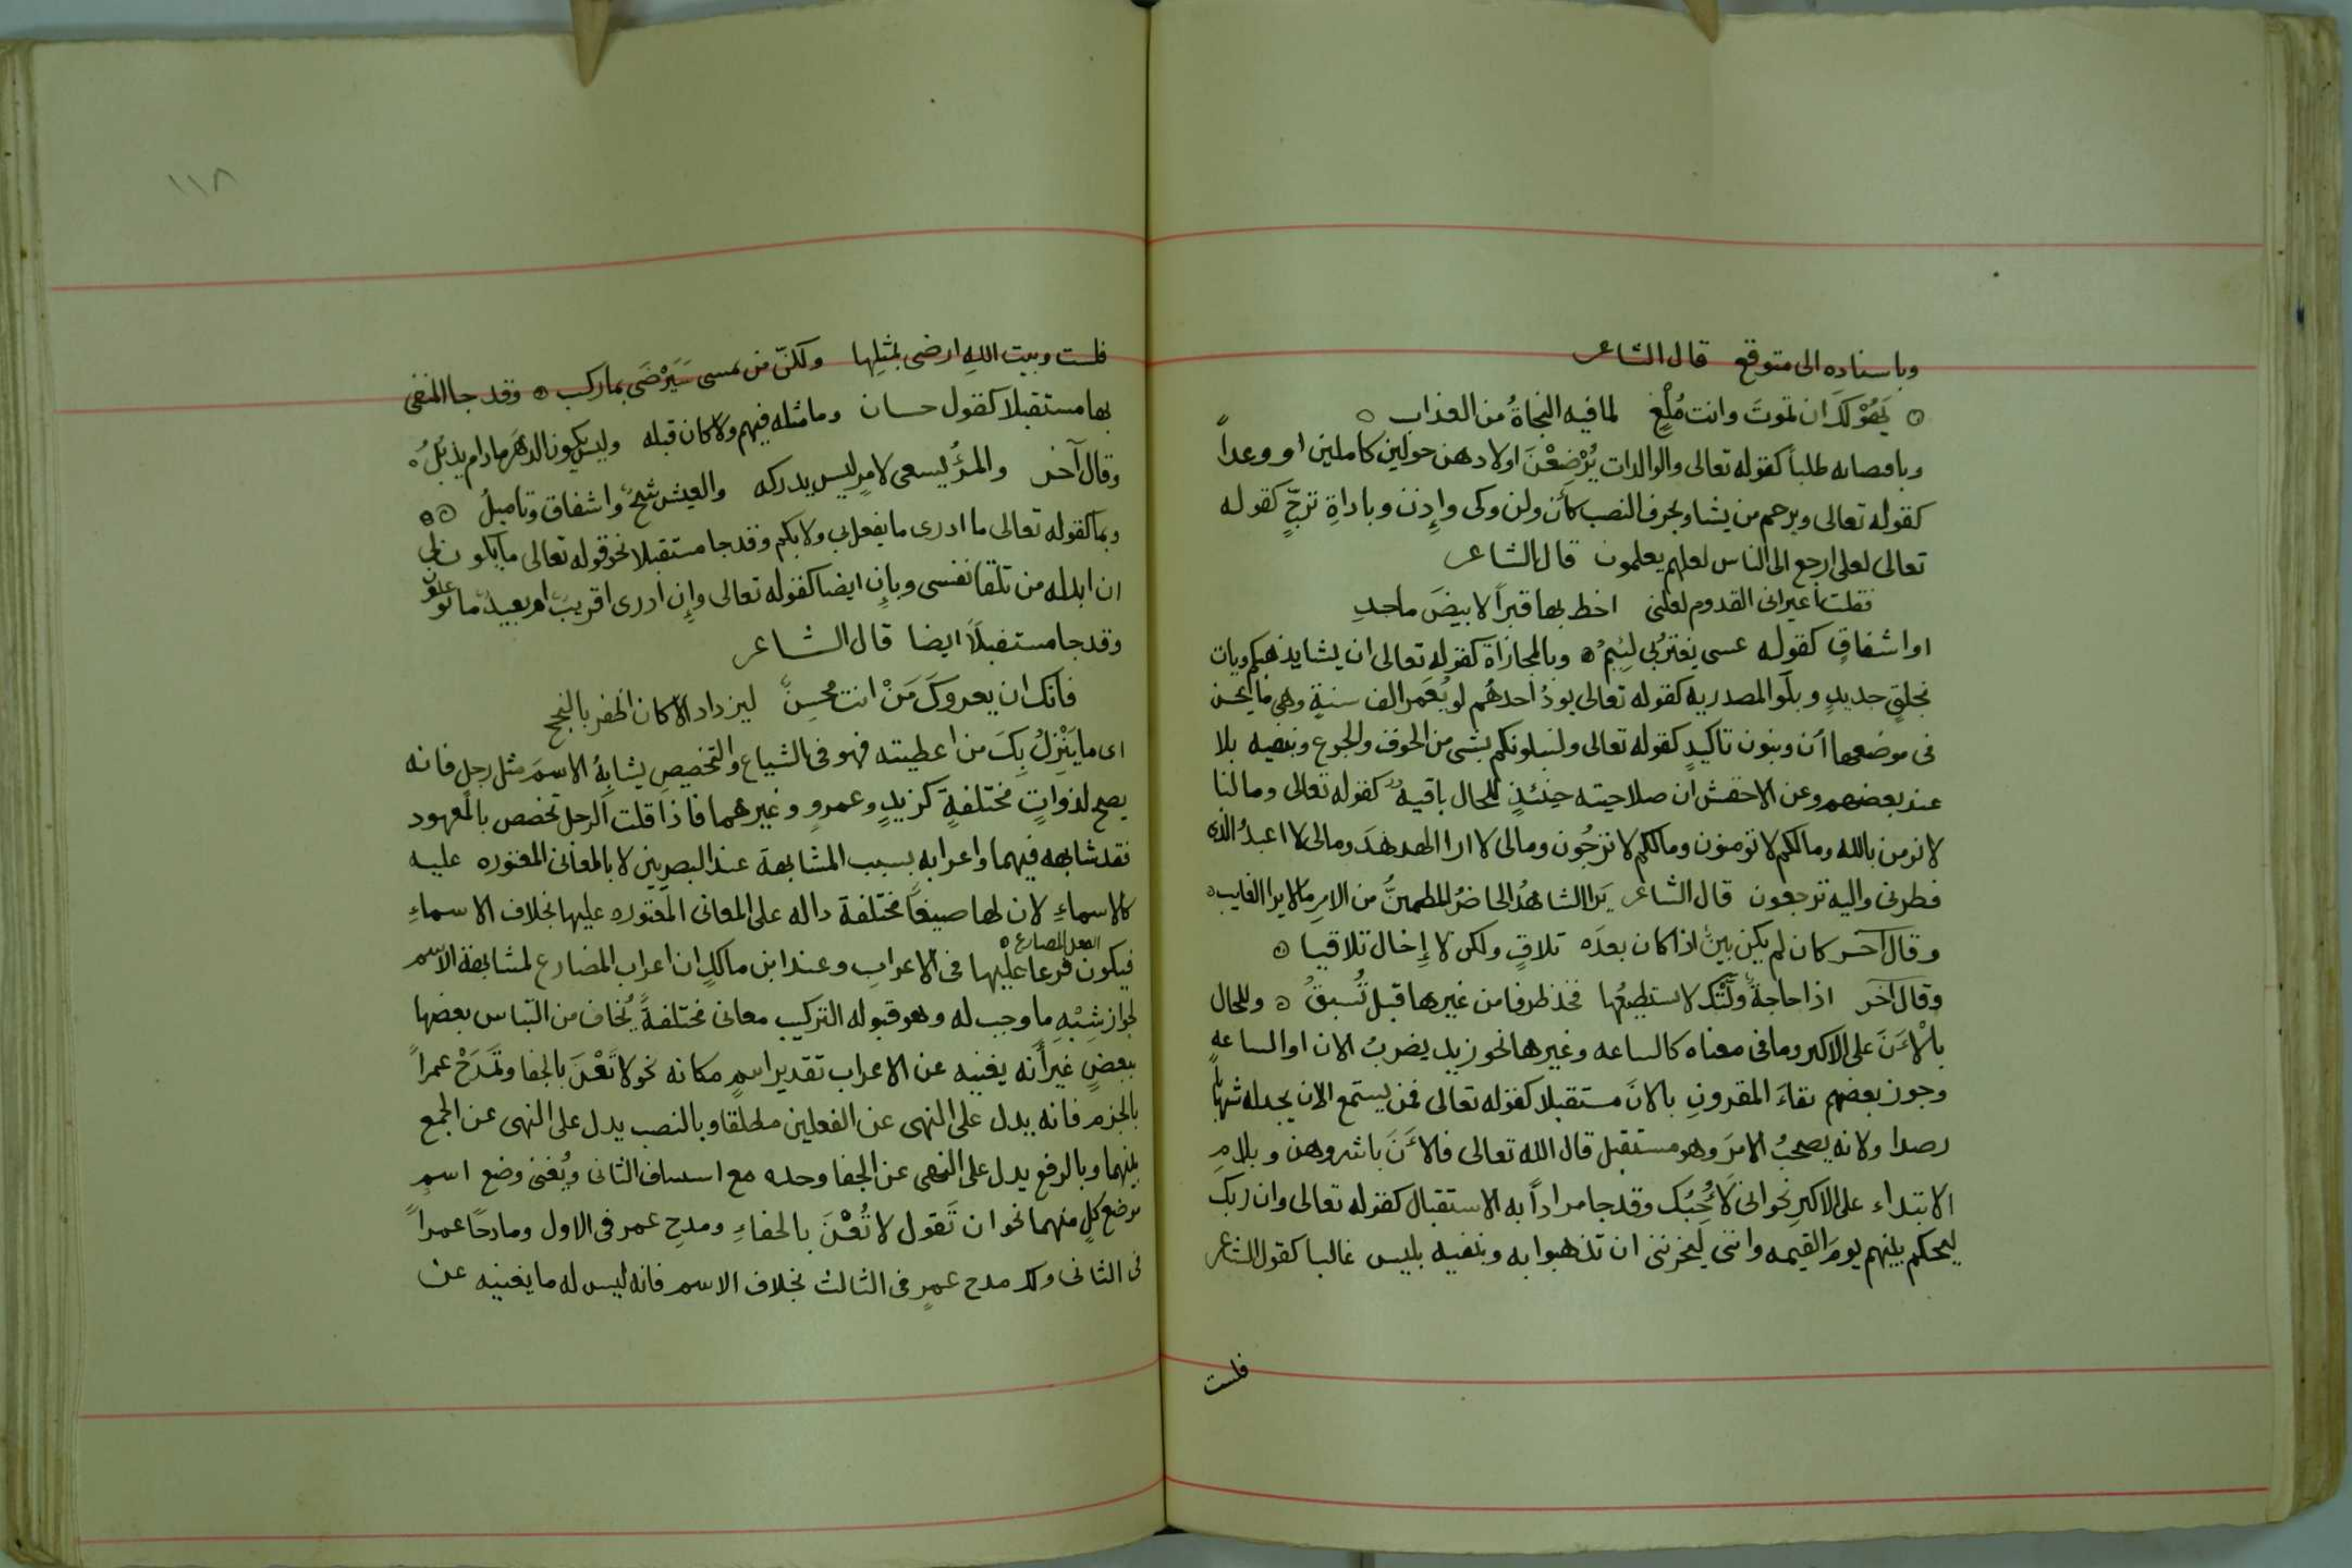 وباسناده الى متوقع قال الشاعر
يَهُوْلُكَ ان تموتَ وانت مُلْغٍ لما فيه النجاةُ من العذاب
وباقتضائه طلباً كقوله تعالى والوالدات يُرْضِعْنَ اولادهن حولين كاملين او وعداً
كقوله تعالى ويرحم من يشا وبحرف النصب كأن ولن وكى وإذن وباداةِ ترجٍّ كقوله
تعالى لعلى ارجع الى الناس لعلهم يعلمون قال الشاعر
فقلت أعيرانى القدوم لعلنى اخط بها قبراً لابيضَ ماجدِ
او اشفاقٍ كقوله عسى يغتربى لئيمُ وبالمجازاة كقوله تعالى ان يشا يذهبكم ويات
بخلقٍ جديدٍ وبلَو المصدريه كقوله تعالى يودُ احدهُم لو يُعَمر الف سنةٍ وهى ما يحسن
فى موضعها أن وبنون تاكيدٍ كقوله تعالى ولنبلونكم بشى من الخوف والجوع وبنفيه بلا
عند بعضهم وعن الاخفش ان صلاحيته حينئذٍ للحال باقيهُ كقوله تعالى وما لنا
لا نومن بالله وما لكم لا تومنون وما لكم لا ترجُون وما لى لا ارا الهدهدَ وما لى لا اعبدُ الذى
فطرنى واليه ترجعون قال الشاعر يَرا الشاهدُ الحاضرُ المطمئنُّ من الامرِ ما لا يرا الغايب
وقال آخر كان لم يكن بينٌ اذا كان بعدَه تلاقٍ ولكن لا إخال تلاقيا
وقال آخر اذا حاجةٌ ولَّتْك لا تستطيعُها فخذ طرفا من غيرها قبل تُسبقُ وللحال
بالْأنَ على الاكبر وما فى معناه كالساعه وغيرها نحو زيد يضربُ الان او الساعهِ
وجوز بعضهم بقاءَ المقرونِ بالانَ مستقبلا كقوله تعالى فمن يستمع الان يجد له شهابا
رصدا ولانه يصحبُ الامرَ وهو مستقبل قال الله تعالى فالأنَ باشروهن وبلامِ
الابتداء على الاكبرِ نحو انى لَأُحِبُك وقد جا مراداً به الاستقبال كقوله تعالى وان ربك
ليحكم بينهم يومَ القيمه وانى ليَحزننى ان تذهبوا به وبنفيه بليس غالبا كقول الشاعر
فلست
١١٨
فلست وبيت اللهِ ارضى بمثلِها ولكنّ من يمسى سَيَرْضَى بما ركب وقد جا المنفى
بها مستقبلا كقول حسان وما مثله فيهم ولا كان قبله وليس يكون الدهرَ ما دام يذبُلُ
وقال آخر والمرُء يسعى لامرٍ ليس يدركه والعيش شحٌ واشفاق وتاميلُ
وبما كقوله تعالى ما ادرى ما يفعل بى ولا بكم وقد جا مستقبلا نحو قوله تعالى ما يكون لى
ان ابدله من تلقا نفسى وبإنِ ايضا كقوله تعالى وإن أدرى اقريبٌ ام بعيدٌ ما توعدون
وقد جا مستقبلاً ايضا قال الشاعر
فانك ان يعروكَ مَنْ انت محُسِنٌ ليزداد الا كان اظفر بالنجح
اى ما يَنْزِلُ بِكَ من اعطيته فهو فى الشياع والتخصيصِ يشابِهُ الاسمَ مثل رجلٍ فانه
يصح لذواتٍ مختلفةٍ كزيدٍ وعمروٍ وغيرهما فاذا قلت الرجل تخصص بالمعهود
فقد شابهه فيهما واعرابه بسبب المشابهة عند البصريين لا بالمعانى المعتوره عليه
كالاسماءِ لان لها صيغاً مختلفة داله على المعانى المعتوره عليها بخلاف الاسماءِ
الفعل المضارع
فيكون فرعا عليها فى الاعرابِ وعند ابن مالكٍ ان اعراب المضارع لمشابهة الاسم
لجواز شِبْهِ ما وجب له وهو قبوله التركيب معانى مختلفةً يُخاف من التباس بعضها
ببعضٍ غيرأنه يغنيه عن الاعراب تقدير اسمٍ مكانه نحو لا تَعْنَ بالجفا وتَمدَحْ عمراً
بالجزم فانه يدل على النهى عن الفعلين مطلقا وبالنصب يدل على النهى عن الجمع
بينهما وبالرفع يدل على النهى عن الجفا وحده مع استيناف الثانى ويُغنى وضع اسمِ
موضع كلٍ منهما نحو ان تَقول لا تُعْنَ بالجفاءِ ومدحِ عمر فى الاول ومادحًا عمراً
فى الثانى ولك مدح عمرٍ فى الثالث بخلاف الاسم فانه ليس له ما يغنيه عن